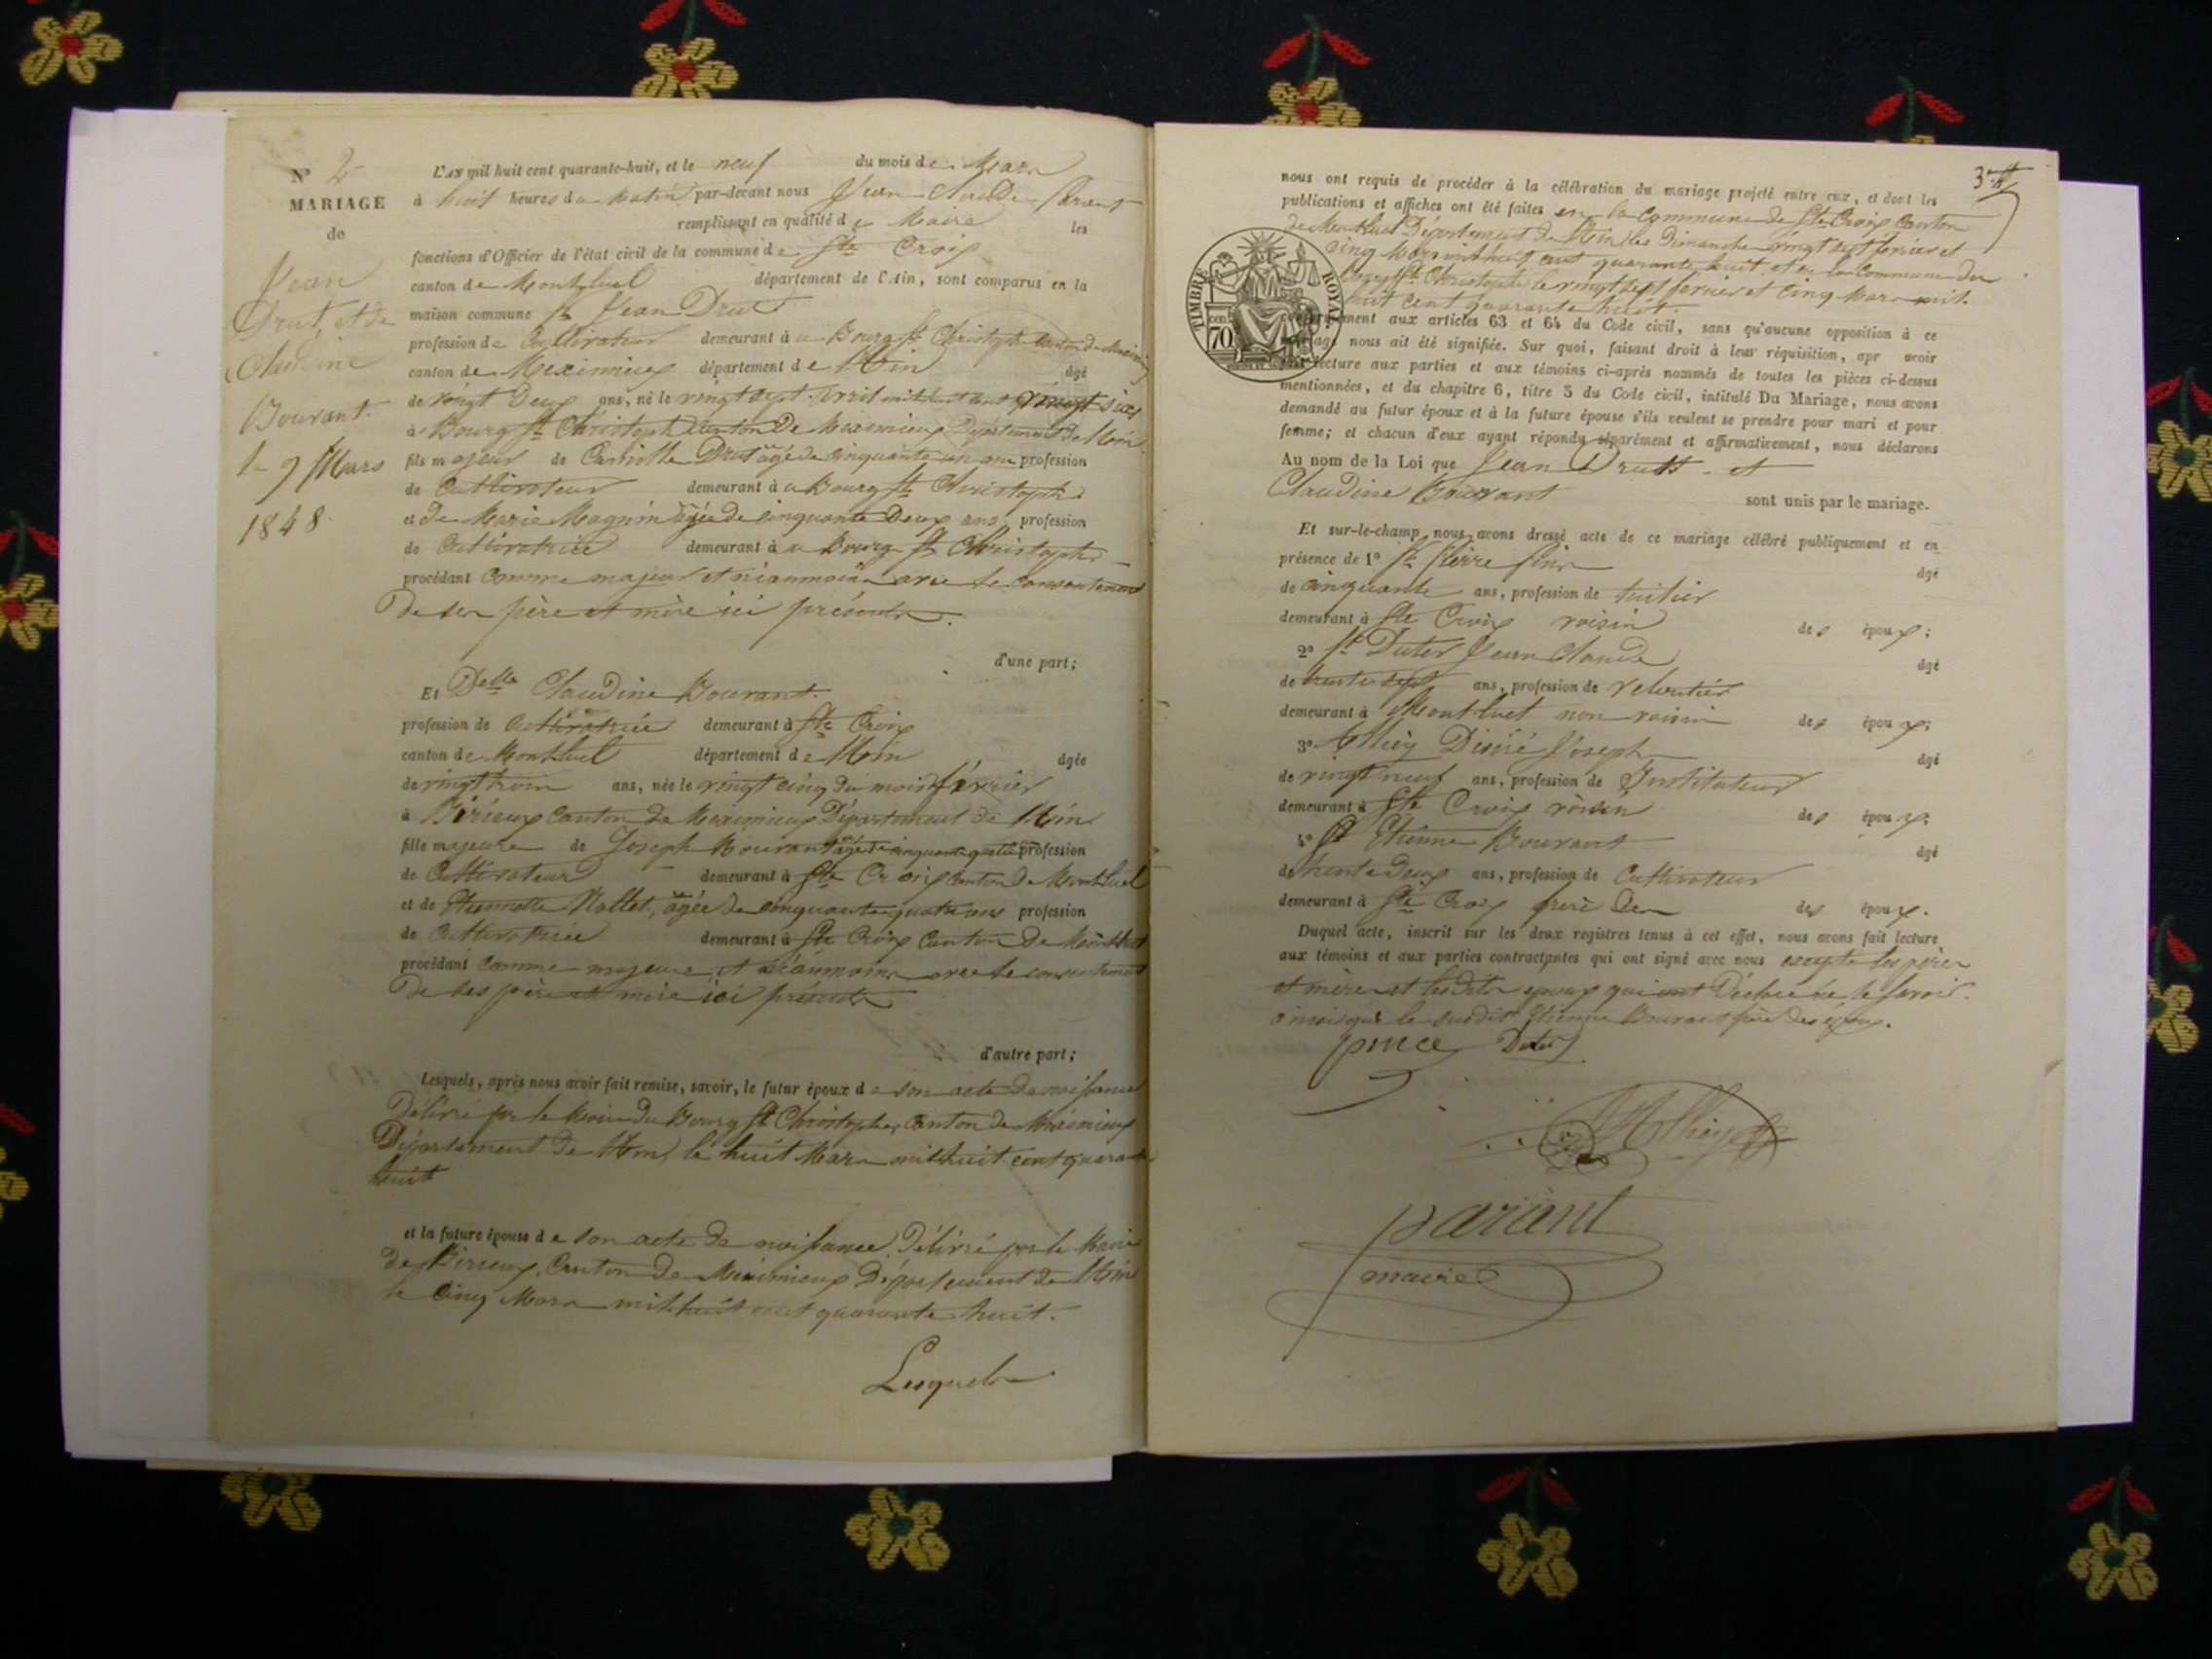 N° 2
MARIAGE
de
Jean
Drut, et de
Claudine
Bouvant.
le 9 Mars
1848.
L'AN mil huit cent quarante-huit, et le neuf du mois de Mars
à huit heures du matin par-devant nous Jean Claude Parant
remplissant en qualité de Maire les
fonctions d'Officier de l'état civil de la commune de Ste Croix
canton de Montluel département de l'Ain, sont comparus en la
maison commune Sr Jean Drut
profession de Cultivateur demeurant à a Bourg St Christophe
canton de Meximieux département de l'Ain âgé
de vingt Deux ans, né le vingt sept avril mil huit cent vingt six
à Bourg St Christophe canton De Meximieux Département de l'Ain
fils majeur de Drut âgé de cinquante un ans profession
de Cultivateur demeurant à a Bourg St Christophe
et de Marie Magnin âgée de cinquante Deux ans, profession
de Cultivatrice demeurant à a Bourg St Christophe
procédant comme majeur et néanmoins avec le consentement
De ses père et mère ici présents.
d'une part;
Et Delle Claudine Bouvant.
profession de Cultivatrice demeurant à Ste Croix
canton de Montluel département de l'Ain âgée
de vingt trois ans, née le vingt cinq du mois février
à Birieux Canton De Meximieux Département de l'Ain
fille majeure de Joseph Bouvant âgé de cinquante quatre profession
de Cultivateur demeurant à Ste Croix canton De Montluel
et de Etiennette Mallet, âgée de cinquante quatre ans profession
de Cultivatrice demeurant à Ste Croix Canton De Montluel
procédant comme majeure et néanmoins avec le consentement
De ses père et mère ici présents
d'autre part;
Lesquels, après nous avoir fait remise, savoir, le futur époux de son acte De naissance
Délivré par le Maire du Bourg St Christophe, Canton de Meximieux
Département De l'Ain, le huit Mars mil huit cent quarante
huit
et la future épouse de son acte de naissance, Délivré par le Maire
de Birieux, Canton De Meximieux Département De l'Ain
le Cinq Mars mil huit cent quarante huit.
Lesquels
nous ont requis de procéder à la célébration du mariage projeté entre eux, et dont les
publications et affiches ont été faites en la Commune de Ste Croix Canton
de Montluel Département de l'Ain les Dimanche vingt sept février et
cinq Mars mil huit cent quarante huit et en la Commune du
Bourg St Christophe le vingt sept fevrier et Cinq Mars mil
huit cent quarante huit.
TIMBRE ROYAL
CEN. 70
aux articles 63 et 64 du Code civil, sans qu'aucune opposition à ce
mariage nous ait été signifiée. Sur quoi, faisant droit à leur réquisition, apr avoir
lecture aux parties et aux témoins ci-après nommés de toutes les pièces ci-dessus
mentionnées, et du chapitre 6, titre 5 du Code civil, intitulé Du Mariage, nous avons
demandé au futur époux et à la future épouse s'ils veulent se prendre pour mari et pour
femme; et chacun d'eux ayant répondu séparément et affirmativement, nous déclarons
Au nom de la Loi que Jean Drutt et
Claudine Bouvant sont unis par le mariage.
Et sur-le-champ nous avons dressé acte de ce mariage célébré publiquement et en
présence de 1° Sr Pierre âgé
de cinquante ans, profession de tuilier
demeurant à Ste Croix voisin des époux;
2° Sr Duter Jean Claude âgé
de trente sept ans, profession de
demeurant à Montluel non voisin des époux;
3° Désiré Joseph âgé
de vingt neuf ans, profession de Instituteur
demeurant à Ste Croix voisin des époux;
4° Sr Etienne Bouvant âgé
de trente Deux ans, profession de Cultivateur
demeurant à Ste Croix frère Des des époux.
Duquel acte, inscrit sur les deux registres tenus à cet effet, nous avons fait lecture
aux témoins et aux parties contractantes qui ont signé avec nous excepté les pères
et mères et lesdits époux qui ont Déclaré ne le savoir.
ainsi que le susdit Etienne Bouvant frère des époux.
Duter
parant
maire